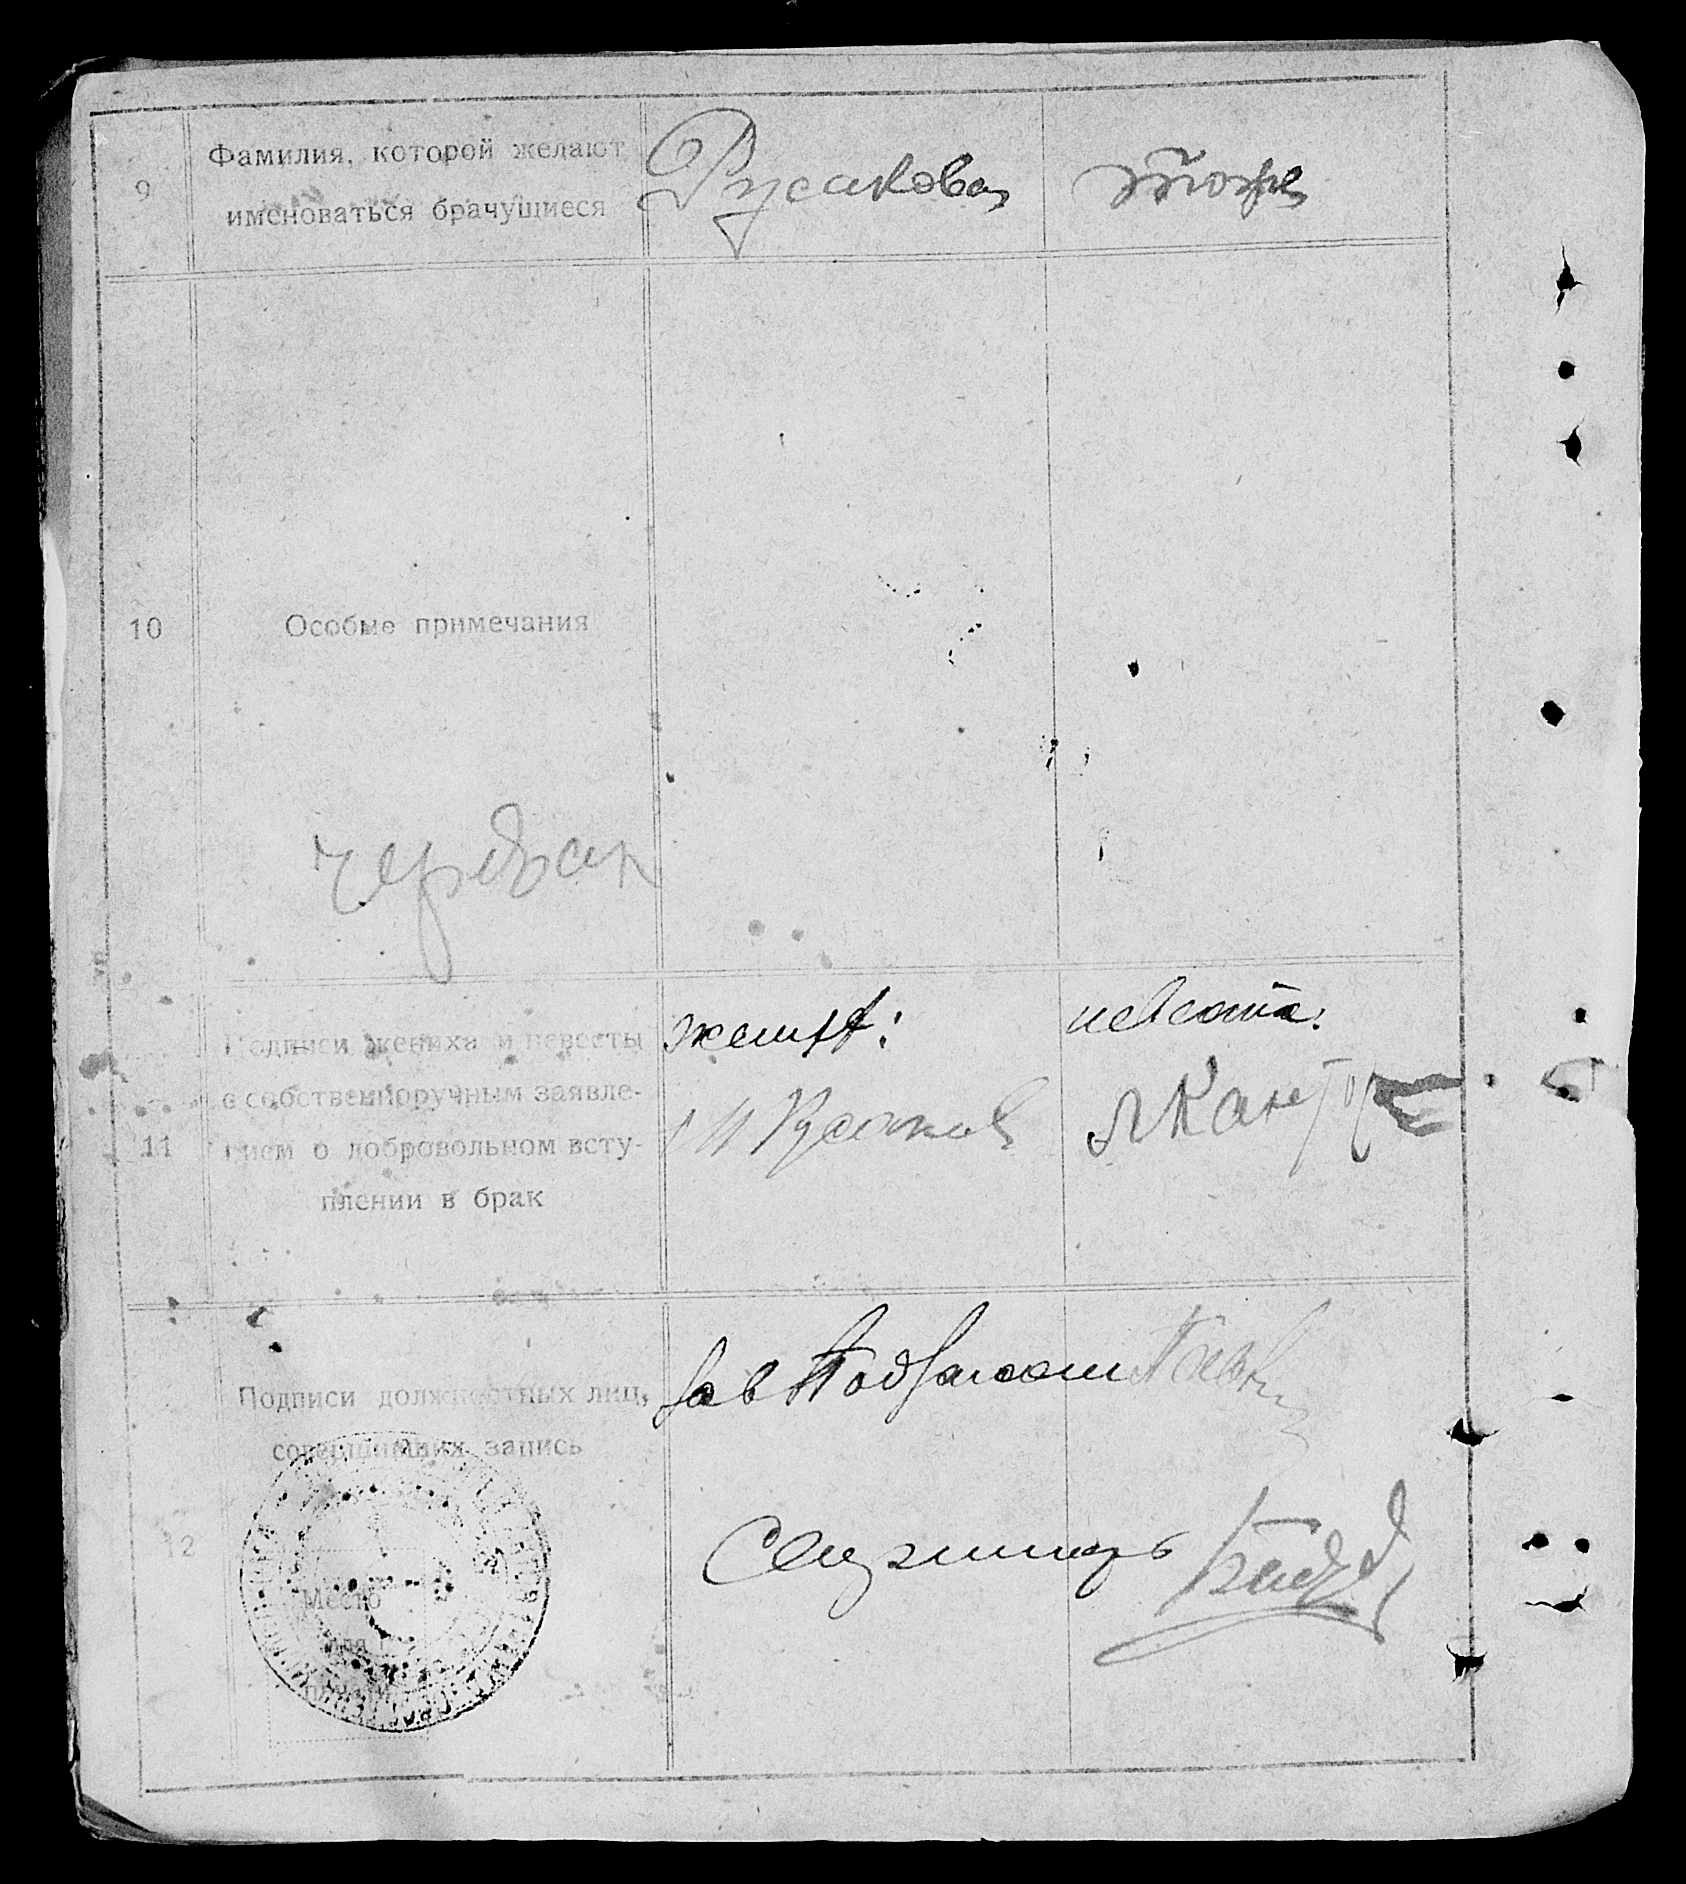 9
Фамилия, которой желают
именоваться брачущиеся
Русакова
тоже
10
Особые примечания
жених:
невеста:
11
Подписи жениха и невесты
с собственноручным заявле-
нием о добровольном всту-
плении в брак
И Русаков
Кантор
12
Подписи должностных лиц,
совершивших запись
Зав Подзагсом
Секретарь
Место
для
печати